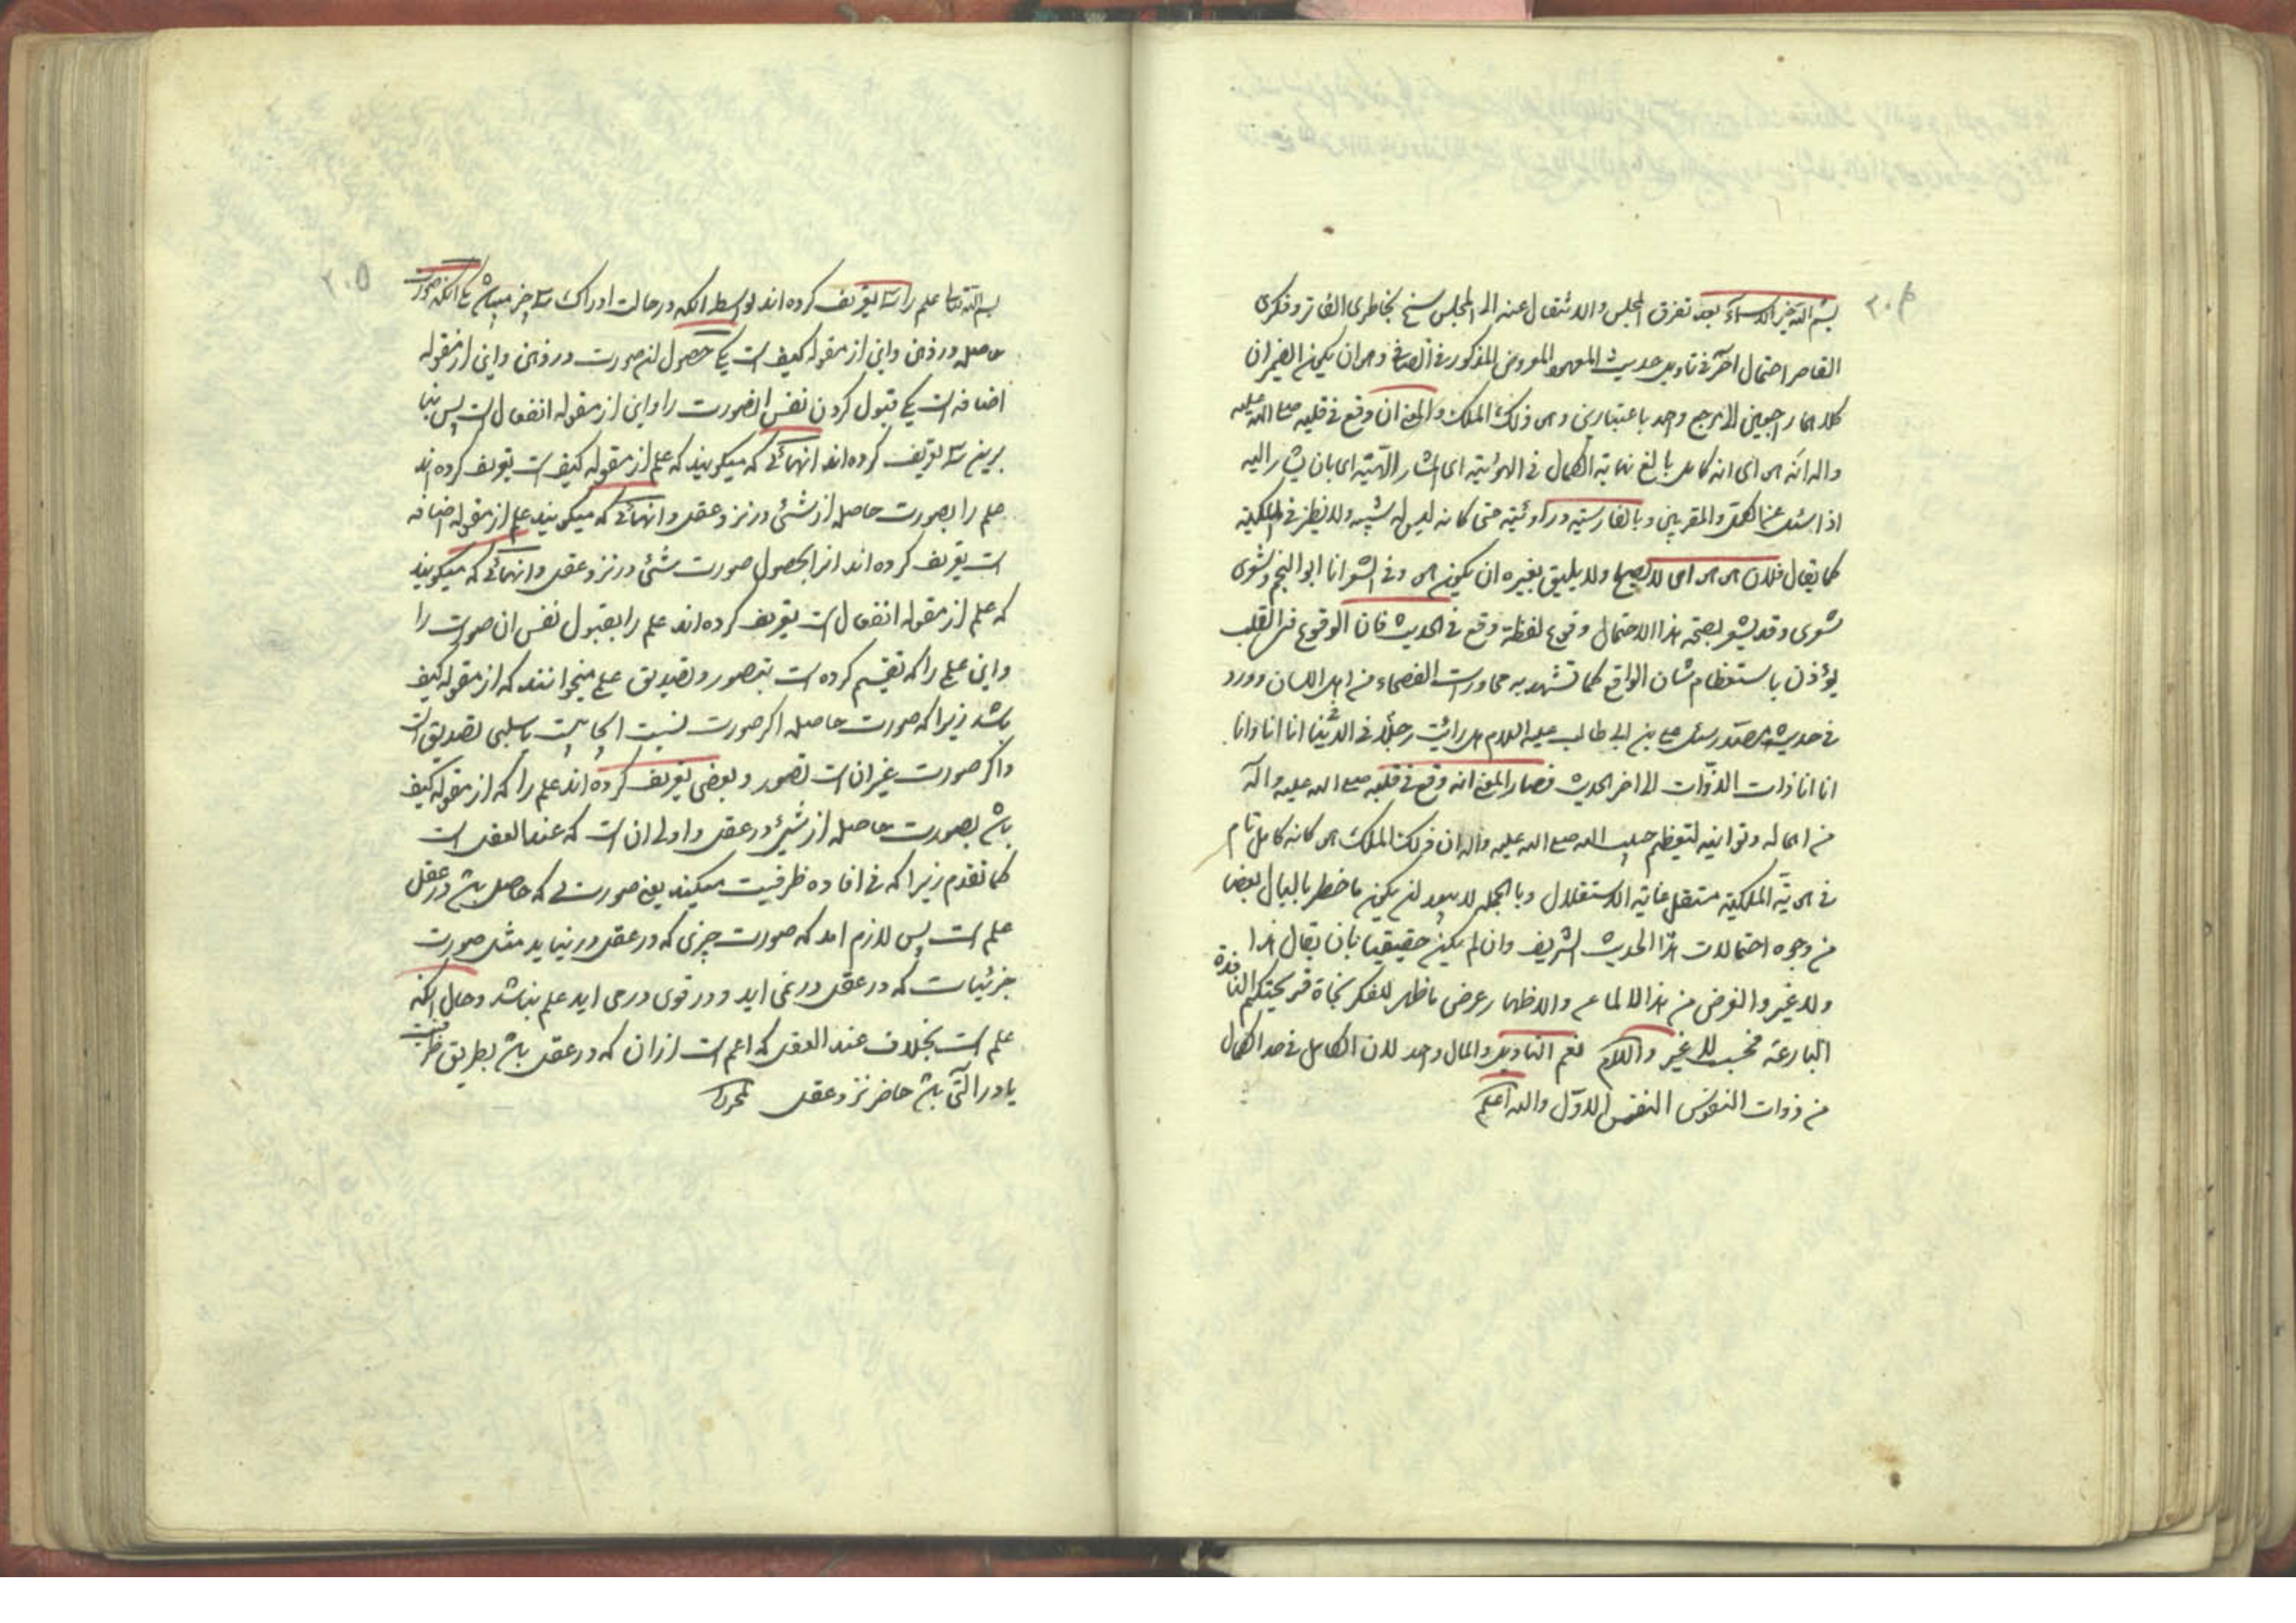 ۲۰۴
بسم الله خیر الاسماء بعد تفرق المجلس والانتقال عنه الی المجلس سنح بخاطری الفاتر وفکری
القاصر احتمال آخر فی تاویل حدیث المعهود المعروض المذکور فی الصافی وهو ان یکون الضمیران
کلاهما راجعین الی مرجع واحد باعتبارین وهو ذلک الملک والمعنی انه وقع فی قلبه صلی الله علیه
واله انه هو ای انه کامل بالغ نهایة الکمال فی الهوئیته ای المشار الیهیته ای بان یشار الیه
اذا سئل عن الکمل والمقربین وبالفارسیه در اوئیته حتی کانه لیس له شبیه ولا نظیر فی الملکیه
کما یقال فلان هو هو ای لا یصلح ولا یلیق بغیره ان یکون هو وفی الشعر انا ابو النجم وشعری
شعری وقد یشعر بصحة هذا الاحتمال وقوع لفظة وقع فی الحدیث فان الوقوع فی القلب
یؤذن باستعظام شان الواقع کما تشهد به محاورات الفصحاء من اهل اللسان وورد
فی حدیث سئل علی بن ابی طالب علیه السلام هل رأیت رجلا فی الدنیا انا انا وانا
انا انا ذات الذوات الی اخر الحدیث فصار المعنی انه وقع فی قلبه صلی الله علیه واله
من لتعظیم حبیب الله صلی الله علیه واله ان ذلک الملک هو کانه کامل تام
فی هویة الملکیة مستقل غایة الاستقلال وبالجمله لا یبعد ان یکون ما خطر بالبال بعض
من وجوه احتمالات هذا الحدیث الشریف وان لم یکن حقیقیا بان یقال هذا
ولا غیر والغرض من هذا الالماع والاظهار عرض ما ظهر للفکر قریحتکم النافذة
البارعة فحسب لا غیر والسلام نعم التاویل والمال واحد لان الکامل فی حد الکمال
من ذوات النفوس النفس الاول والله اعلم
۲۰۵
بسم الله تعالی علم را سه تعریف کرده اند بواسطه انکه در حالت ادراک سه چیز میباشد یکی انکه صورت
حاصله در ذهن واین از مقوله کیف است یکی حصول ان صورت در ذهن واین از مقوله
اضافه است یکی قبول کردن نفس ان صورت را واین از مقوله انفعال است پس بنا
برین سه تعریف کرده اند انهائی که میکویند که علم از مقوله کیف است تعریف کرده اند
علم را بصورت حاصله از شئی در نزد عقل وانهائی که میکویند علم از مقوله اضافه
است تعریف کرده اند انرا بحصول صورت شئی در نزد عقل وانهائی که میکویند
که علم از مقوله انفعال است تعریف کرده اند علم را بقبول نفس ان صورت را
واین علمی را که تقسیم کرده است بتصور وتصدیق علمی میخوانند که از مقوله کیف
باشد زیرا که صورت حاصله اکر صورت نسبت ایجابیست یا سلبی تصدیق است
واکر صورت غیر ان است تصور وبعضی تعریف کرده اند علم را که از مقوله کیف
باشد بصورت حاصله از شئ در عقل واولی ان است که عند العقل است
کما تقدم زیرا که فی افاده ظرفیت میکند یعنی صورتی که حاصل باشد در عقل
علم است پس لازم امد که صورت چیزی که در عقل در نیاید مثل صورت
جزئیات که در عقل در نمی اید ودر قوی در می اید علم نباشد وحال انکه
علم است بخلاف عند العقل که اعم است از ان که در عقل باشد بطریق ظرفیت
یا در التی باشد حاضر نزد عقل